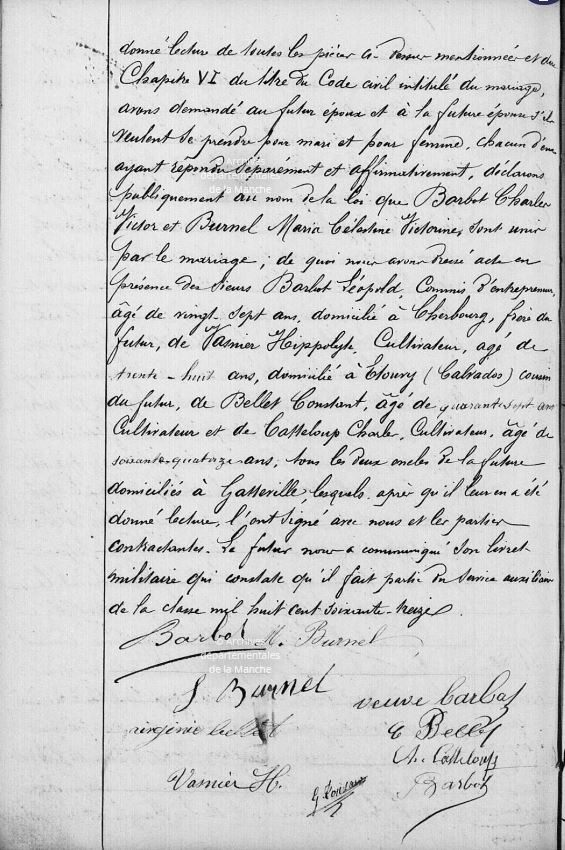 donné lecture de toutes les pièces ci-dessus mentionnées et du
Chapitre VI du titre du Code civil intitulé du mariage,
avons demandé au futur époux et à la future épouse s'ils
veulent se prendre pour mari et pour femme, chacun d'eux
ayant répondu séparément et affirmativement, déclarons
publiquement au nom de la loi que Barbot Charles
Victor et Burnel Maria Célestine Victorine, sont unis
par le mariage ; de quoi nous avons dressé acte en
présence des sieurs Barbot Léopold, Commis d'entrepreneur,
âgé de vingt-sept ans, domicilié à Cherbourg, frère du
futur, de Vasnier Hippolyte, Cultivateur, agé de
trente-huit ans, domicilié à Etouvy (Calvados) cousin
du futur, de Bellet Constant, âgé de quarante sept ans
Cultivateur et de Catteloup Charle, Cultivateur, âgé de
soixante-quatorze ans, tous les deux oncles de la future
domiciliés à Gatteville, lesquels, après qu'il leur en a été
donné lecture, l'ont signé avec nous et les parties
contractantes. Le futur nous a communiqué son livret
militaire qui constate qu'il fait partie du service auxiliaire
de la classe mil huit cent soixante-treize.
Barbot M. Burnel
Burnel veuve barbot
virginie C Bellet
Ch. Catteloup
Vasnier H. Barbot
© Archives
départementales
de la Manche
© Archives
départementales
de la Manche